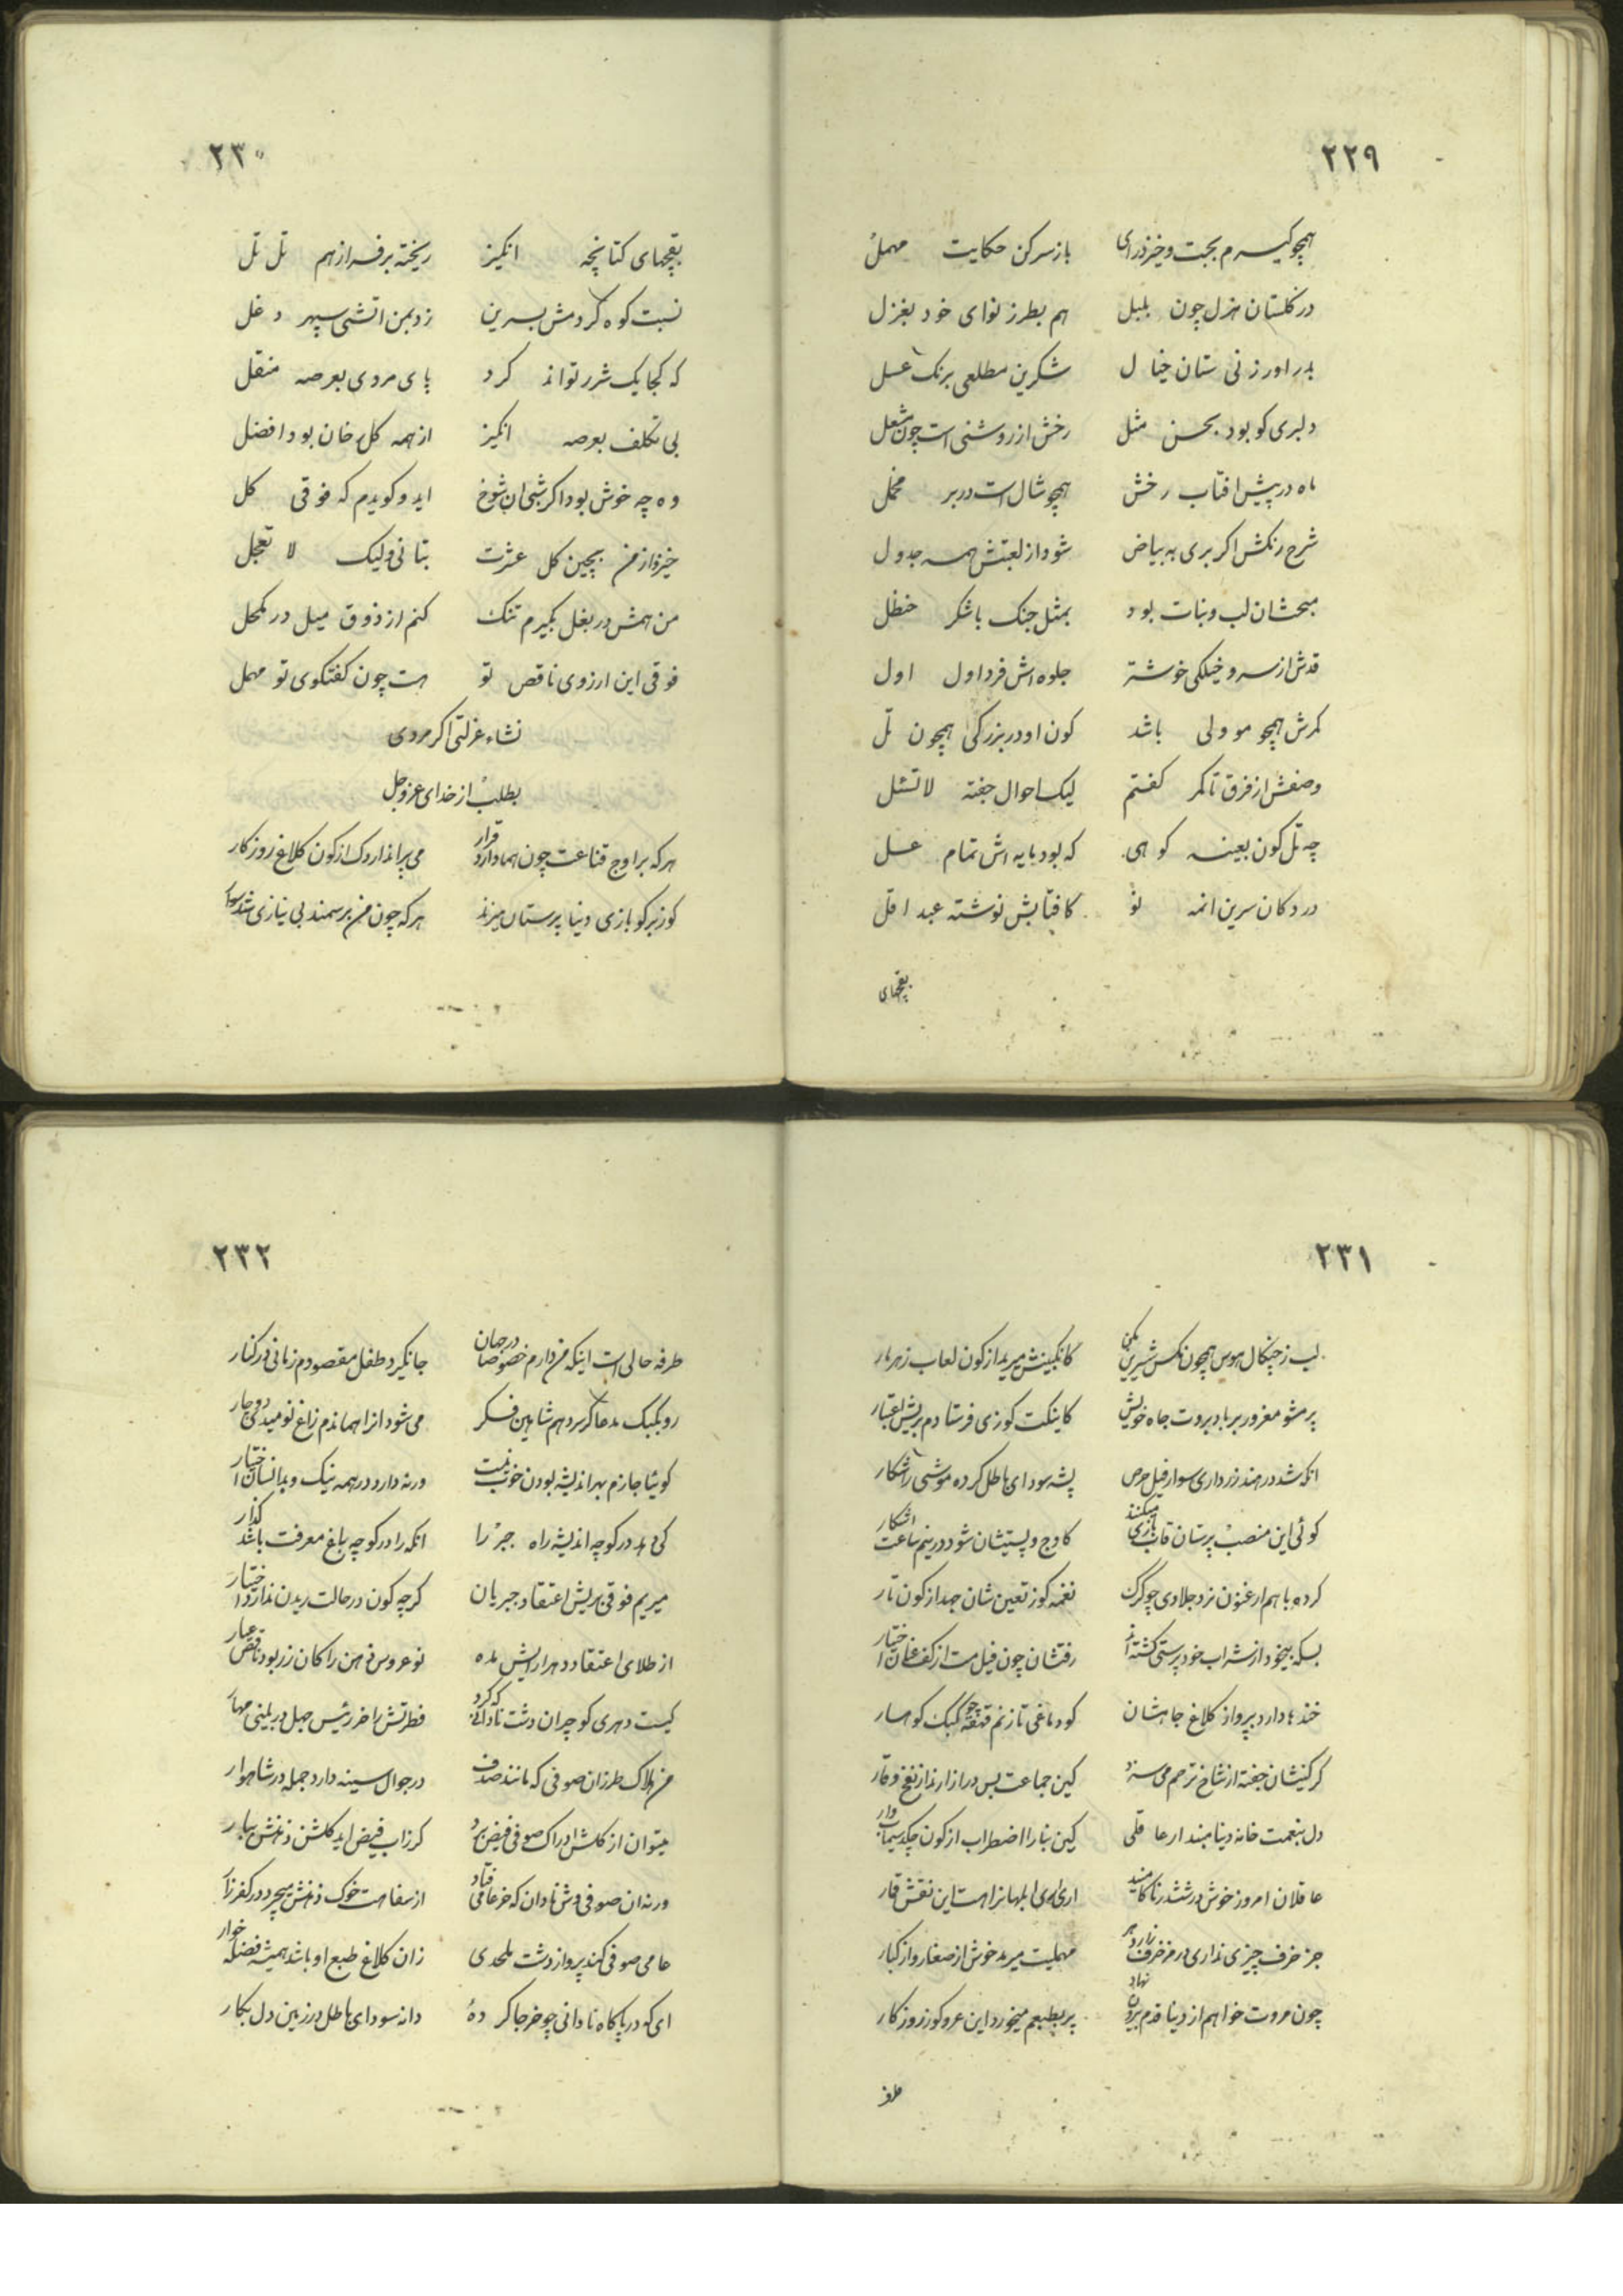 ٢٢٩
همچو کیسرم بجست و خیز درای باز سر کن حکایت مهمل
در گلستان هزل چون بلبل هم بطرز نوای خود بغزل
بدر اور ز نی ستان خیال شکرین مطلعی برنک عسل
دلبری کو بود بحسن مثل رخش از روشنی است چون مشعل
ماه در پیش افتاب رخش همچو شال است در بر مخمل
شرح رنکش اکر بری به بیاض شود از لعبتش همه جدول
مبحثشان لب و نبات بود بمثل جنک با شکر حنظل
قدش از سرو خیلکی خوشتر جلوه اش فرد اول اول
کمرش همچو مو ولی باشد کون او در بزرکی همچون تل
وصفش از فرق تا کمر کفتم لیک احوال جفته لاتسئل
چه تل کون بعینه کوهی که بود پایه اش تمام عسل
در دکان سرین انمه نو کافتابش نوشته عبد اقل
بقچهای
٢٣٠
بقچهای کتابچه انکیز ریخته بر فراز هم تل تل
نسبت کوه کردمش بسرین زد بمن اتشی سپهر دغل
که کجا یک شرر تواند کرد پای مردی بعرصه منقل
بی تکلف بعرصه انکیز از همه کل رخان بود افضل
وه چه خوش بود اکر شبی ان شوخ اید و کویدم که فوقی کل
خیز و از من بچین کل عشرت بتانی ولیک لا تعجل
من همش در بغل بکیرم تنک کنم از ذوق میل در مکحل
فوقی این ارزوی ناقص تو هست چون کفتکوی تو مهمل
نشاء عزلتی اکر مردی
بطلب از خدای عز و جل
هر که بر اوج قناعت چون هما دارد قرار می پراند اردک از کون کلاغ روزکار
کوز بر کوبازی دنیا پرستان میزند هر که چون من بر سمند بی نیازی شد سوار
٢٣١
لب ز چنکال هوس همچون مکس شیرین مکن کانکبینش میریزد از کون لعاب زهربار
پر مشو مغرور بر باد بروت جاه خویش کاینکت کوزی فرستادم بریش اعتبار
انکه شد در هند زرداری سوار فیل حرص پشه سودای باطل کرده موشی را شکار
کوئی این منصب پرستان قاب بازی میکنند کاوج و پستیشان شود در نیم ساعت اشکار
کرده با هم ارغنون نزد جلادی چو کرک نغمه کوز تعین شان جهد از کون تار
بسکه بیخود از شراب خود پرستی کشته اند رفتشان چون فیل مست از کف عنان اختیار
خندها دارد بپرواز کلاغ جاهشان کو دماغی تا زنم قهقهه چو کبک کوهسار
کر کنیشان جفته از شاخ ترحم می سزد کین جماعت بس درازارند از نفخ وقار
دل بنعمت خانه دنیا مبند ار عاقلی کین بنا را اضطراب از کون چکد سیماب وار
عاقلان امروز خوش در ششدر ناکامیند اری اری ابلهانراهست این نقش قمار
جز خرف چیزی نداری در مزخرف زار دهر مهملیت میرمد خوش از صغار و از کبار
چون مروت خواهم از دنیا قدم بیرون نهاد پر بطبعم میخورد این عر و کوز روزکار
طرفه
٢٣٢
طرفه حالی است اینکه من دارم خصوصا در جهان جا نکیرد طفل مقصودم زمانی در کنار
رو بکبک مدعا کر سر دهم شاهین فکر می شود از راهماندم زاغ نومیدی دوچار
کوئیا جازم بهر اندیشه بودن خوب نیست ورنه دارد در همه نیک و بد انسان اختیار
کی دهد در کوچه اندیشه راه جبر را انکه را در کوچه باغ معرفت باشد کذار
میریم فوقی بریش اعتقاد جبریان کرچه کون در حالت ریدن ندارد اختیار
از طلای اعتقاد دهر ارایش مده نو عروس ذهن را کان زر بود ناقص عیار
کیست دهری کو چران دشت نادانی که کرد فطرتش را خر رئیس جهل در بینی مهار
من هلاک طرز ان صوفی که مانند صدف در جوال سینه دارد جمله در شاهوار
میتوان از کلشن ادراک صوفی فیض برد کر ز اب فیض اید کلشن ذهنش ببار
ورنه ان صوفی وش نادان که خر عامی فتاد از سفاهت خوک ذهنش میچرد در کفرزار
عامی صوفی کند پرواز دشت ملحدی زان کلاغ طبع او باشد همیشه فضله خوار
ای که در پاکاه نادانی چو خر جا کرده دانه سودای باطل در زمین دل بکار